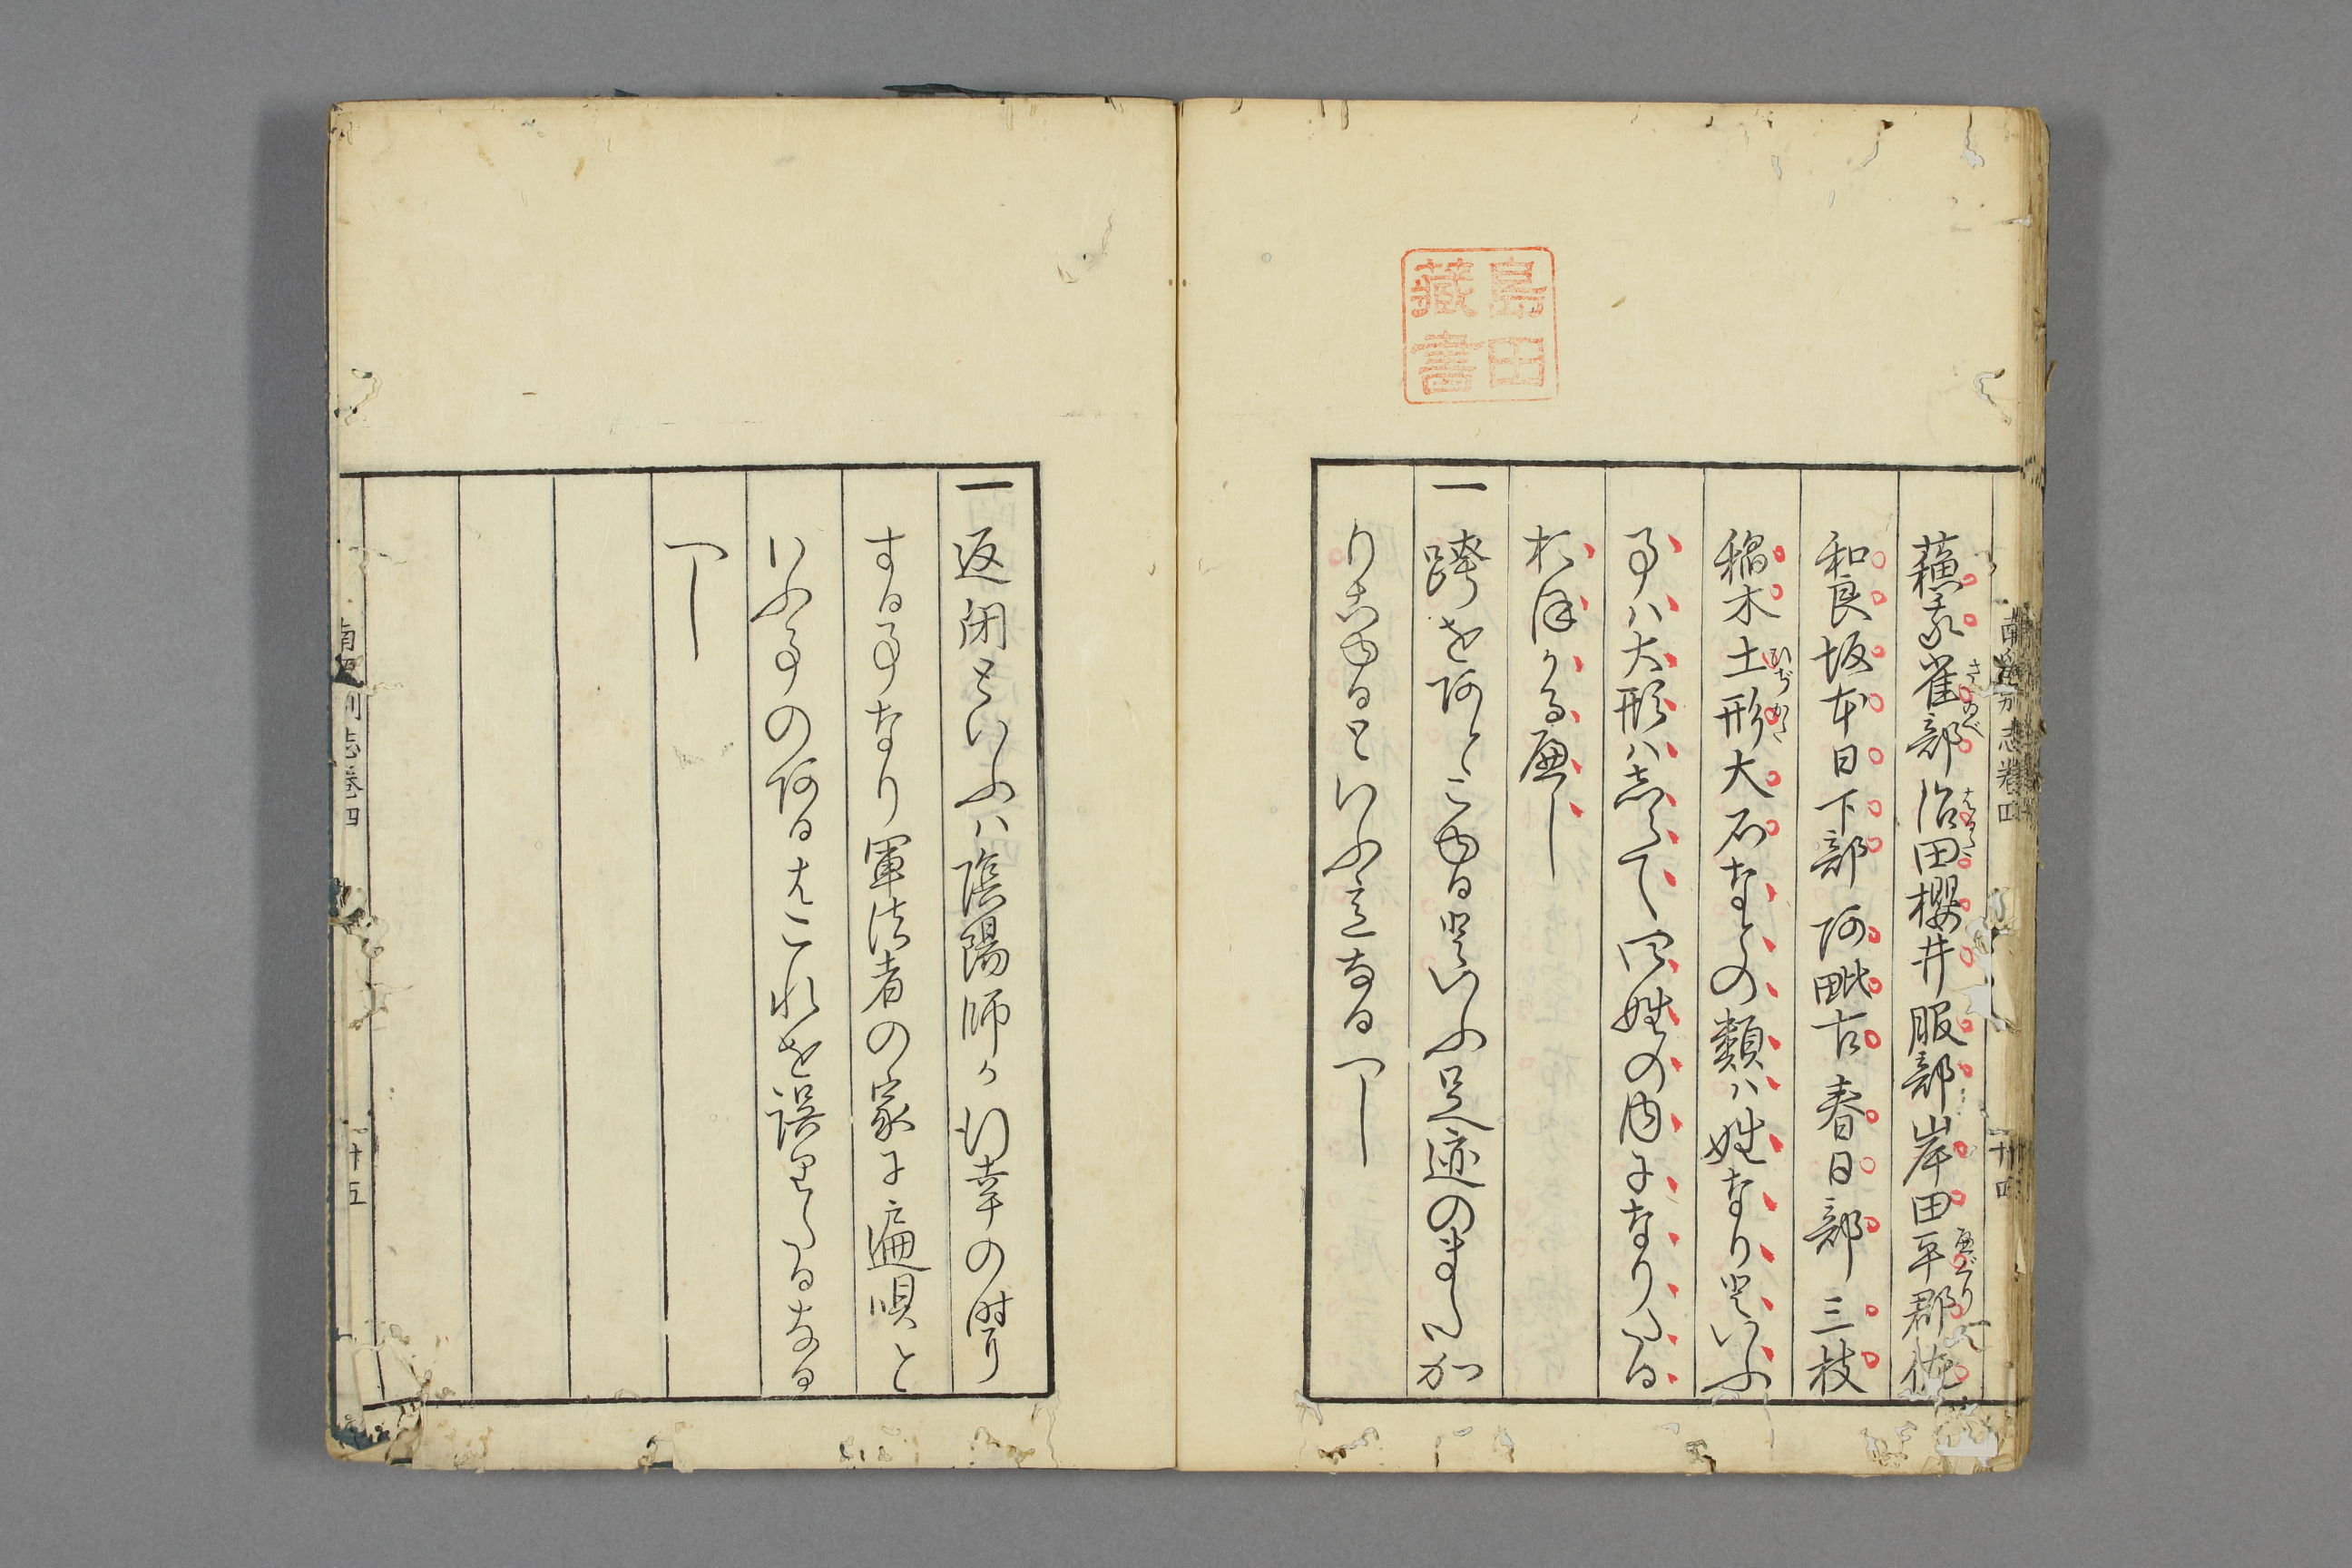 島田
藏書
南留別志巻四 十四
蘓我雀部治田櫻井服部岸田平郡佐
さゝべ
へぐり
和良坂本日下部阿毗古春日部三枝
稲木土形大石なとの類ハ姓なりといふ
ひぢかた
事ハ大形ハ志らて只姓の内になりたる
おほかるへし
一 跨をあとこゆるといふ足迹のまか
りこゆるといふ意なるへし
一 返閉といふハ陰陽師か行幸の時に
する事なり軍法者の家に遍唄と
いふ事のあるはこれを誤りたるなる
へし
南留別志巻四
十五